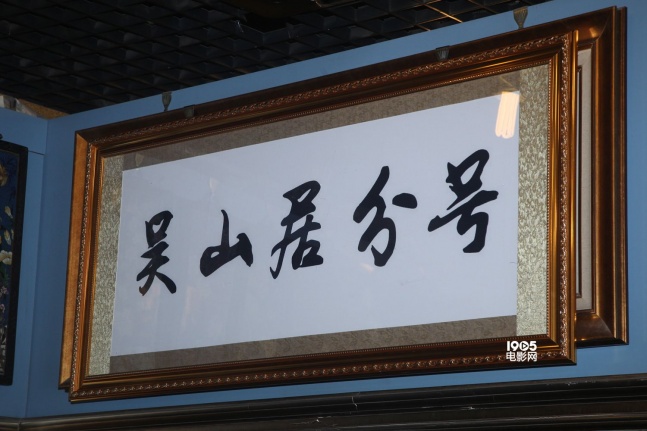 吴山居分号
1905
电影网